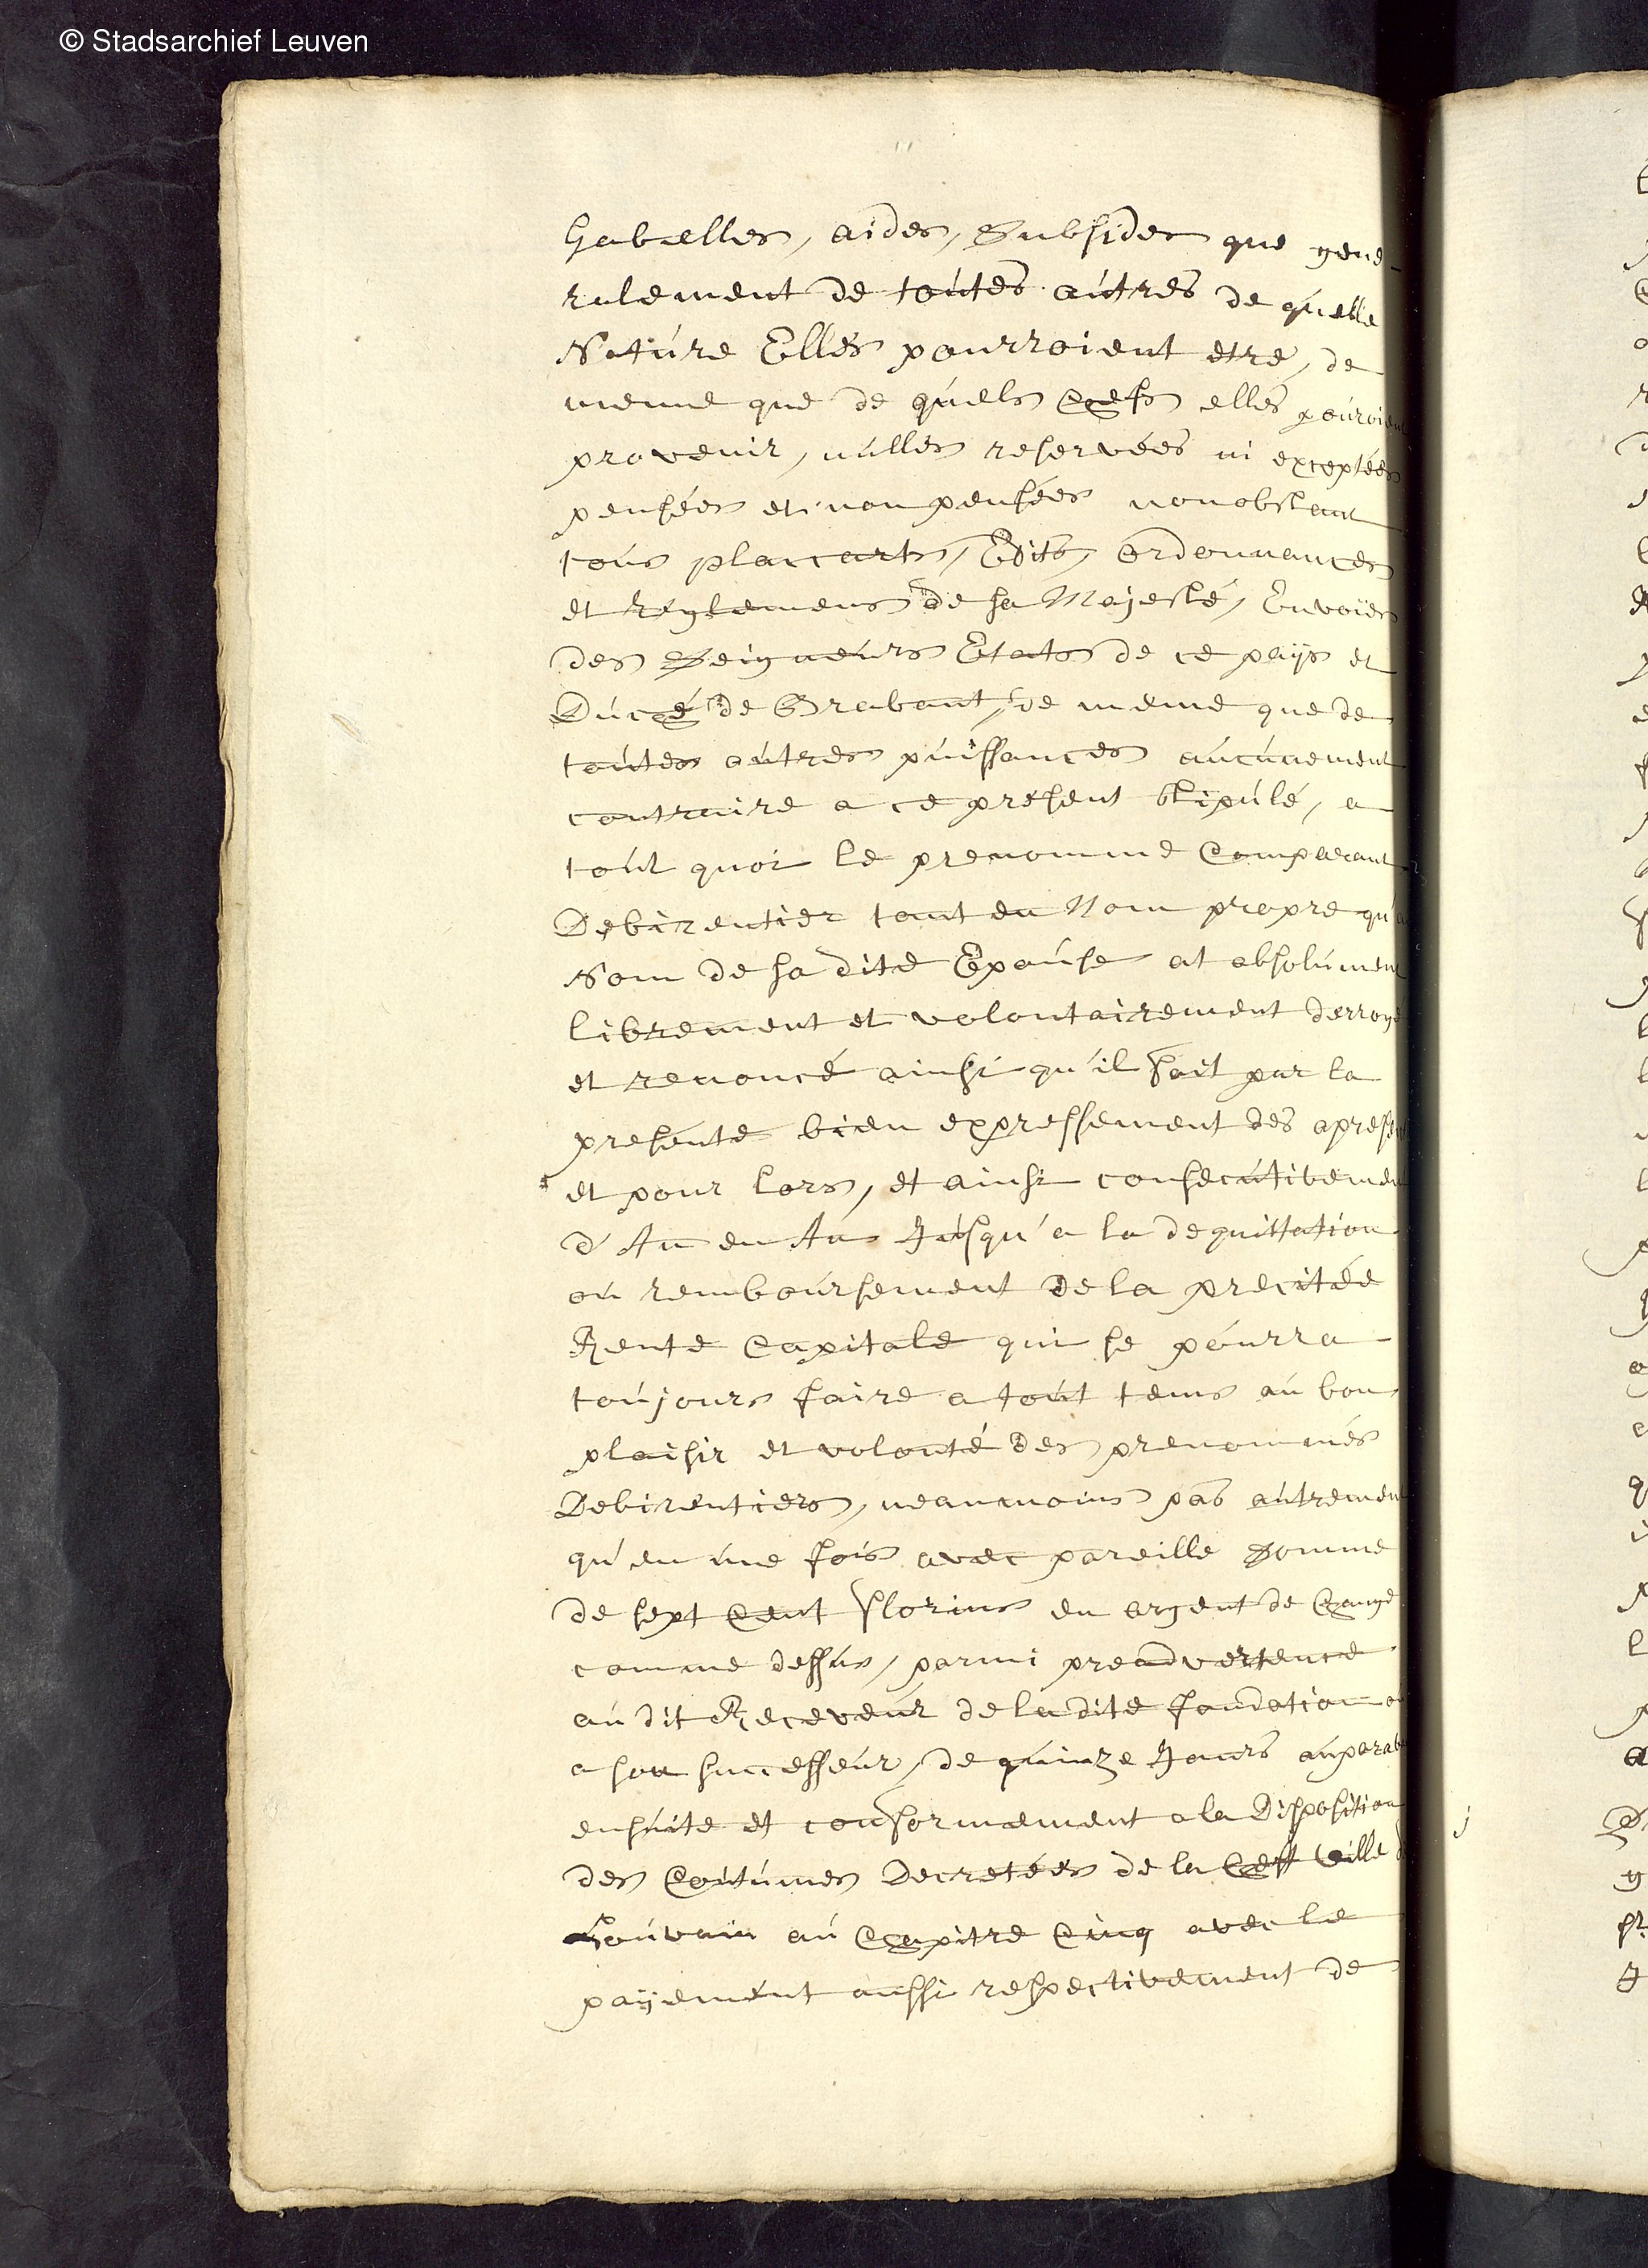 © Stadsarchief Leuven
Gabelles, aides, Subsides que gene-
ralement de toutes autres de quelle
Nature Elles pourroient etre, de
meme que de quels Chefs elles pouroient
provenir, nulles reservées ni exceptées
pensées et non pensées nonobstant
tous placcarts, Edits, Ordonnances
et Reglemens de sa Majesté, Envoiés
des Seigneurs Etats de ce païs et
Duché de Brabant, de meme que de
toutes autres puissances aucunement
contraire a ce present stipulé, a
tout quoi le prenomme Comparant
Debirentier tant en Nom propre qu'a
Nom de sa dite Epouse at absolument
librement et volontairement derrogé
et renoncé ainsi qu'il fait par la
presente bien expressement des apresent
et pour lors, et ainsi consecutivement
d'An en An Jusqu'a la dequittation
ou remboursement de la precitée
Rente Capitale qui se pourra
toujours faire a tout tems au bon
plaisir et volonté des prenommés
Debirentiers, neanmoins pas autrement
qu'en une fois avec pareille Somme
de sept Cent florins en argent de Change
comme dessus, parmi preadvertence
au dit Receveur de la dite fondation ou
a son successeur, de quinze Jours auparav
ensuite et conformement a la Disposition
des Coutumes Decretées de la Cheff ville d
Louvain au Chapitre Cinq avec le
païement aussi respectivement de